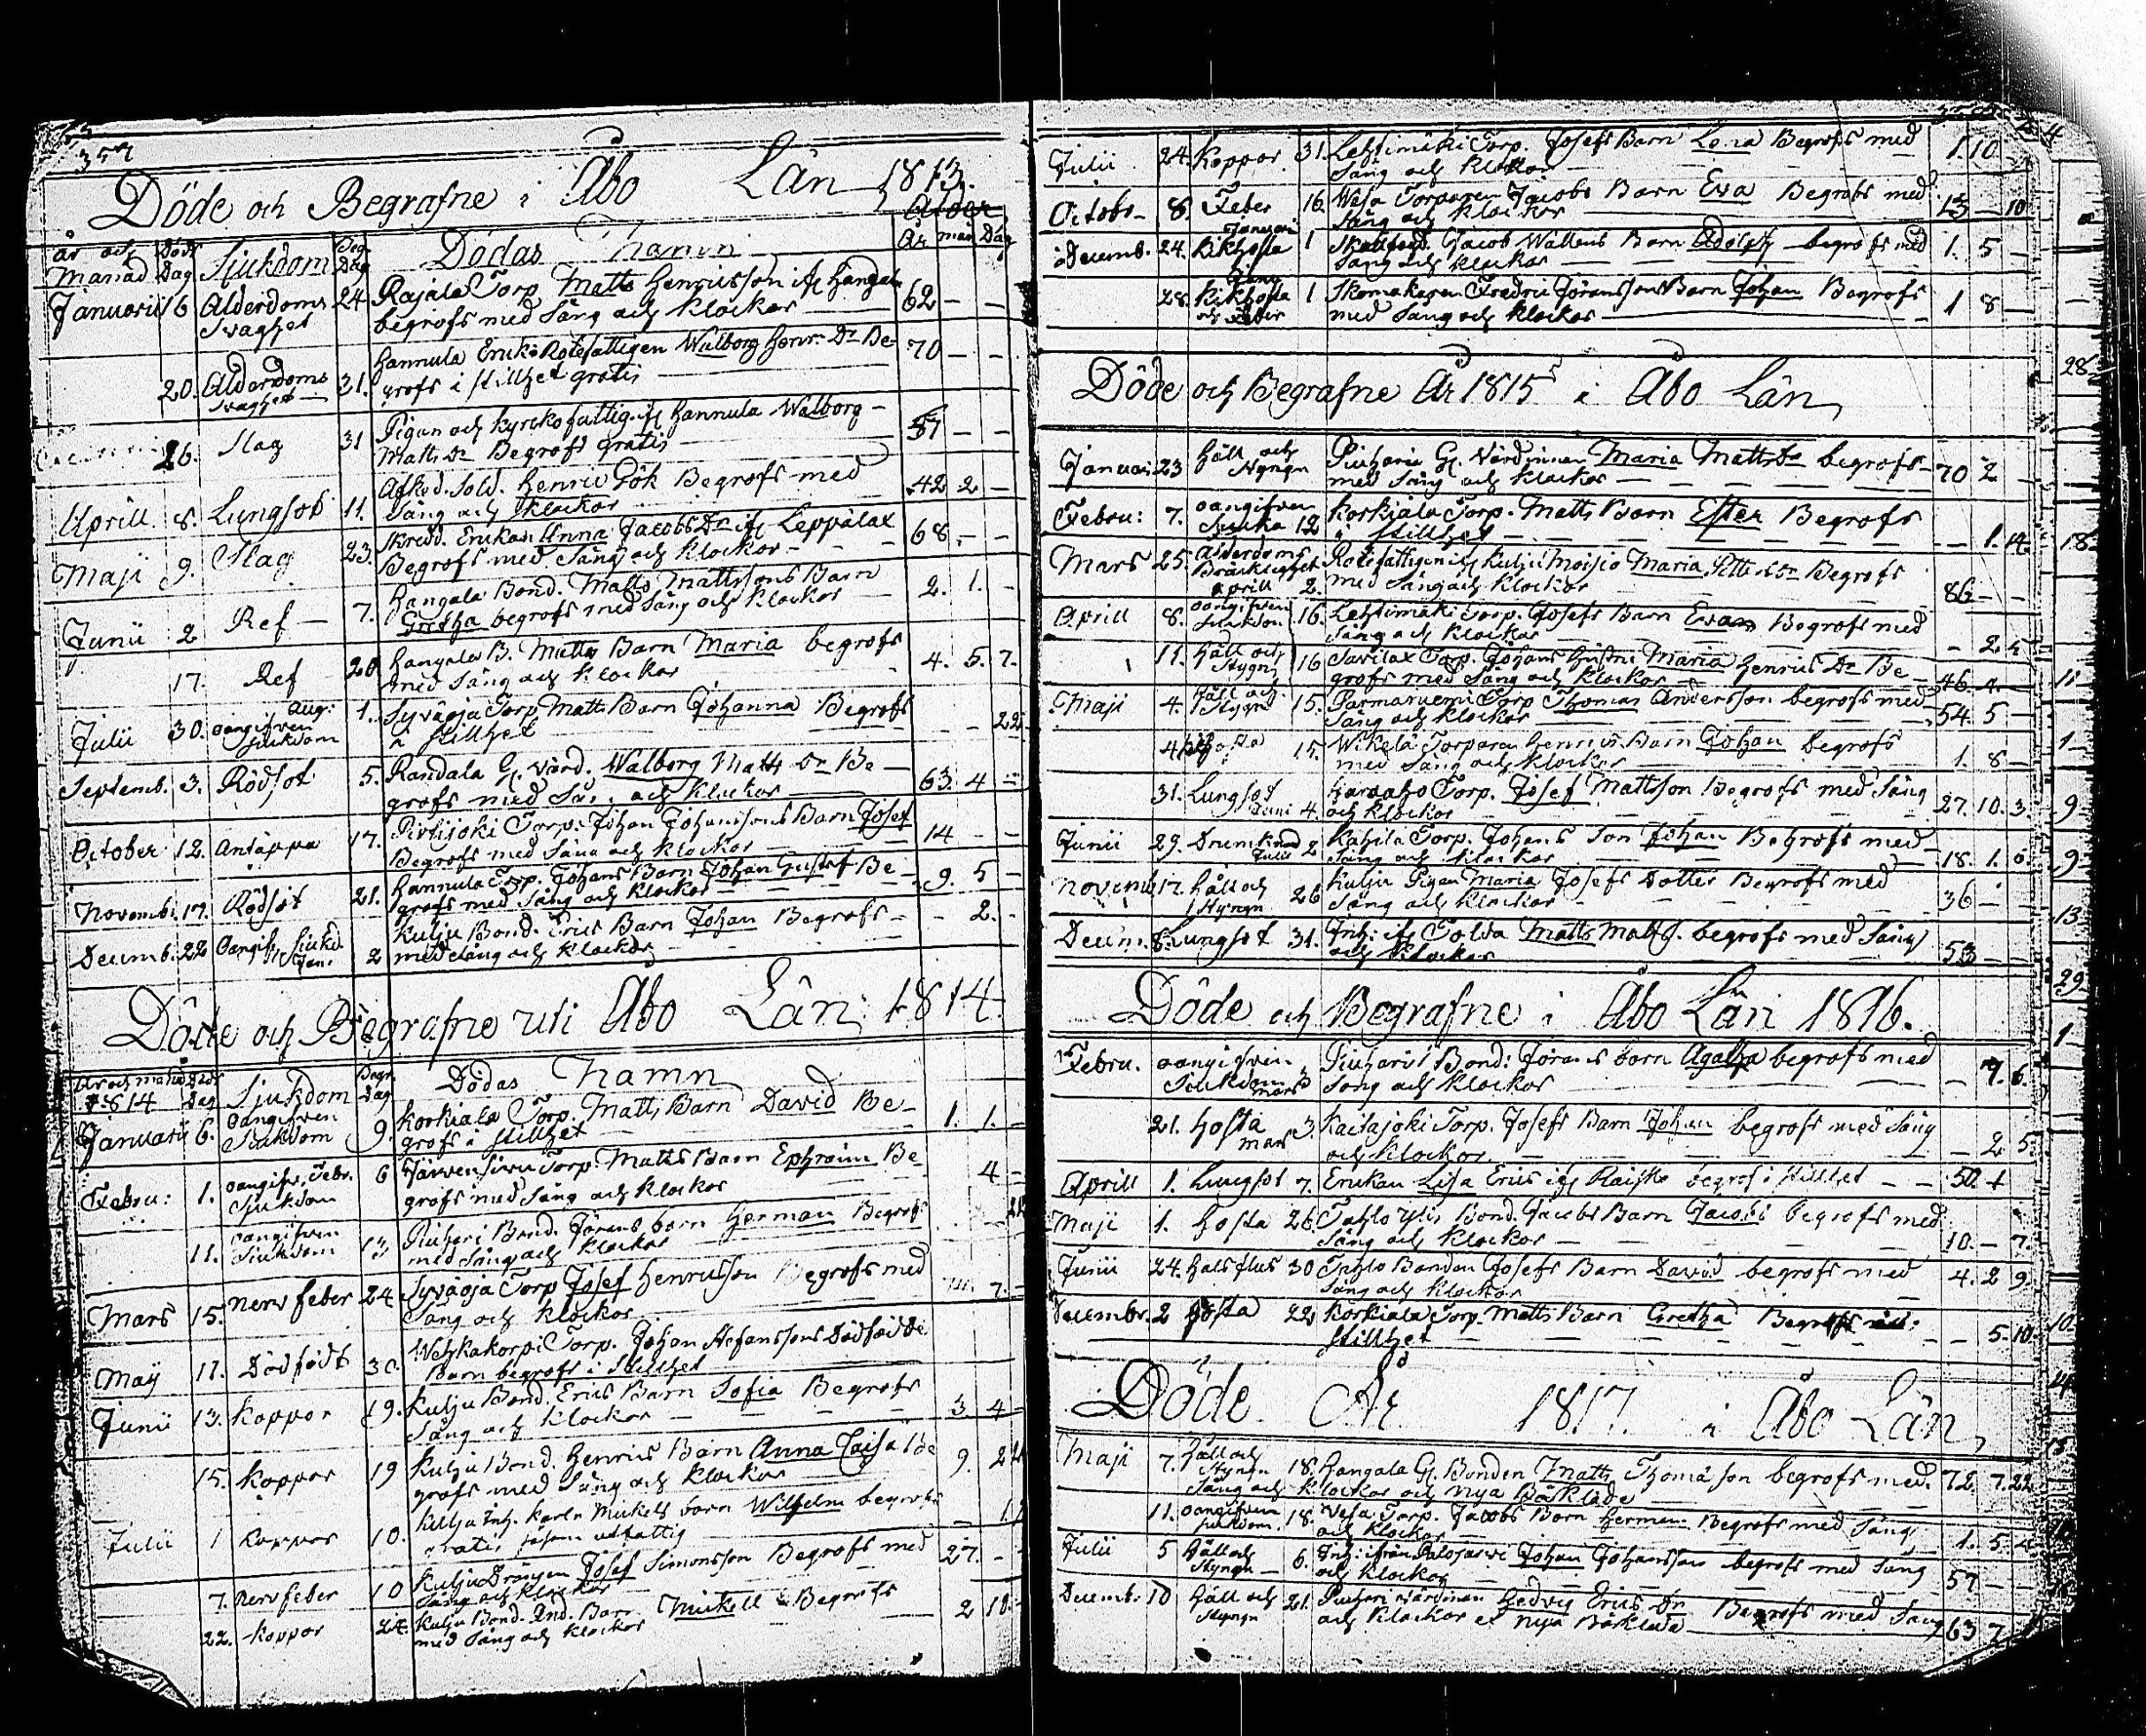 357
Döde och Begrafne i Åbo Län 1813.
år och Månad Död Dag Sjukdom Beg. Dag Dödas Namn Ålder År mån Dag
Januarii 6 Ålderdoms 24 Rajala Torp Matts Henricsson ifr Hangala 62 — —
svaghet begrofs med Sång och Klockor
20. Ålderdoms 31. Hannula Eriks Rotefattigen Walborg Henr. Dr Be- 70 — —
svaghet grofs i stillhet gratis
26. Slag 31 Pigan och kyrckofattig. ifr Hannula Walborg 57 — —
Matts Dr Begrofs gratis
Aprill 8. Lungsot 11. Afsked. Sold. Henric Gök Begrofs med 42 2 —
Sång och Klockor
Maji 9. Slag 23. Skredd. Enkan Anna Jacobs Dr ifr Leppälax 68 — —
Begrofs med Sång och Klockor
Junii 2 Ref 7. Hangala Bond. Matts Mattssons Barn 2. 1. —
Gretha begrofs med Sång och Klockor
17. Ref 20 Hangala B. Matts Barn Maria begrofs 4. 5. 7.
med Sång och Klockor
Julii 30. oangifven aug: 1. Syväoja Torp Matts Barn Johanna Begrofs — — 22
Siukdom i stillhet
Septemb. 3. Rödsot 5. Randala G. värd. Walborg Matts Dr Be- 63 4 —
grofs med Sång och Klockor
October 12. Antäppa 17. Pirtijoki Torp. Johan Johanssons Barn Josef 14 — —
Begrofs med Sång och Klockor
Novemb. 17. Rödsot 21. Hannula Torp. Johans Barn Johan Gustaf Be- 9. 5 —
grofs med Sång och Klockor
Decemb. 22 Oangif. Siukd. Jan. 2 Kulju Bond. Erics Barn Johan Begrofs — 2. —
med Sång och Klockor
Döde och Begrafne uti Åbo Län 1814.
År och månad Död Dag Sjukdom Begr. Dag Dödas Namn
1814
Januarii 6. Oangifven 9. Korkiala Torp. Matts Barn David Be- 1. 1. —
Siukdom grofs i stillhet
Febru: 1. oangifv. Febr. 6 Järvensivu Torp. Matts Barn Ephraim Be- 4 —
Sjukdom grofs med Sång och Klockor
11. oangifven 13 Piuhari Bond. Jörans barn Herman Begrofs
Siukdom med Sång och Klockor
Mars 15. Nervfeber 24 Syväoja Torp Josef Henricsson Begrofs med 7. —
Sång och Klockor
Maij 17. Dödfödt 30. Wehkakorpi Torp. Johan Stefanssons Dödfödde
Barn begrofs i Stillhet
Junii 13. Koppor 19. Kulju Bond. Erics Barn Sofia Begrofs 3 4 —
Sång och Klockor
15. Koppor 19 Kulju Bond. Henrics Barn Anna Caisa Be 9. 2
grofs med Sång och Klockor
Julii 1 Koppor 10. Kulju Inh. Karln Mickels barn Wilhelm begrofs
gratis såsom utfattig
7. Nervfeber 10 Kulju Drängen Josef Simonsson Begrofs med 27. — —
Sång och Klockor
22. Koppor 24. Kulju Bond. And. Barn Mickell Begrofs 2 10 —
med Sång och Klockor
Julii 24. Koppor 31. Lehtimäki Torp. Josefs Barn Lena Begrofs med 1. 10
Sång och Klockor
Octobr 8. Feber 16. Wesa Torparen Jacobs Barn Eva Begrofs med 13 — 10
Sång och Klockor
Decemb. 24. Kikhosta Januari 1 Jacob Wällens Barn Adolph begrofs med 1. 5 —
Sång och Klockor
28. Kikhosta 1 Skomakaren Fredric Jöranssons Barn Johan Begrofs 1 8 —
och Feber med Sång och Klockor
Döde och Begrafne År 1815 i Åbo Län
Januari 23 Håll och Piuhari G. Värdinnan Maria Matts Dr begrofs 70 2 —
Styngn med Sång och Klockor
Febru: 7. oangifven 12 Korkiala Torp. Matts Barn Ester Begrofs — 1. 14.
Siuka i stillhet
Mars 25. Ålderdoms Rotefattigen ifr Kulju Moisio Maria Begrofs 86 — —
Bräcklighet Aprill 2. med Sång och Klockor
Aprill 8. oangifven 16. Lehtimäki Torp. Josefs Barn Eva Begrofs med — 2.
Siukdom Sång och Klockor
11. Håll och 16 Savilax Torp. Johans Hustru Maria Henrics Dr Be- 46.
Stygn grofs med Sång och Klockor
Maji 4. Håll och 15. Torp Thomas Andersson begrofs med 54. 5 —
Stygn Sång och Klockor
4 hosta 15. Wikelä Torparen Henrics Barn Johan begrofs 1. 8 —
med Sång och Klockor
31. Lungsot Torp. Josef Mattsson Begrofs med Sång 27. 10. 3.
Juni 4. och Klockor
Junii 29. Drunknad Kahila Torp. Johans Son Johan Begrofs med 18. 1. 6
Julii 2 Sång och Klockor
Novemb 17. Håll och 26 Kulju Pigan Maria Josefs Dotter Begrofs med 36 — —
Styngn Sång och Klockor
Decem. 8. Lungsot 31. Inh: ifr Matts Matts. begrofs med Sång 53 — —
och Klockor
Döde och Begrafne i Åbo Län 1816.
Febru. oangifven Piuhari Bond: Jörans barn Agatha begrofs med 7. 6.
Siukdom mars 3 Sång och Klockor
21. Hosta Kaitajoki Torp. Josefs Barn Johan begrofs med Sång — 2 5.
mars 3. och Klockor.
Aprill 1. Lungsot 7. Enckan Lisa Erics ifr Raisko begrof. i stillhet — — 50.
Maji 1. Hosta 26 Tahlo Bond. Jacobs Barn Jacob begrofs med 10. — 7.
Sång och Klockor
Junii 24. Halsflus 30 Tahlo Bondan Josefs Barn David begrofs med 4. 2 9.
Sång och Klockor
Decembr. 2 Hosta 22 Korkiala Torp. Matts Barn Gretha — 5. 10.
stillhet
Döde År 1817. i Åbo Län
Maji 7. Håll och 18. Hangala G. Bonden Matts Thomasson begrofs med 72. 7. 22
Styngn Sång och Klockor och nya Bårkläde
11. Oangifven 18. Vesa Torp. Jacobs Barn Herman Begrofs med Sång 1. 5.
Siukdom. och Klockor
Julii 5 Håll och 6. Inh: ifrån Palojärvi Johan Johansson begrofs med Sång 57 — —
Styngn och Klockor
Decemb. 10 Håll och 21. Piuhari värdinnan Hedvig Erics Dr Begrofs med Sång 63 7
Styngn och Klockor nya Bårkläde